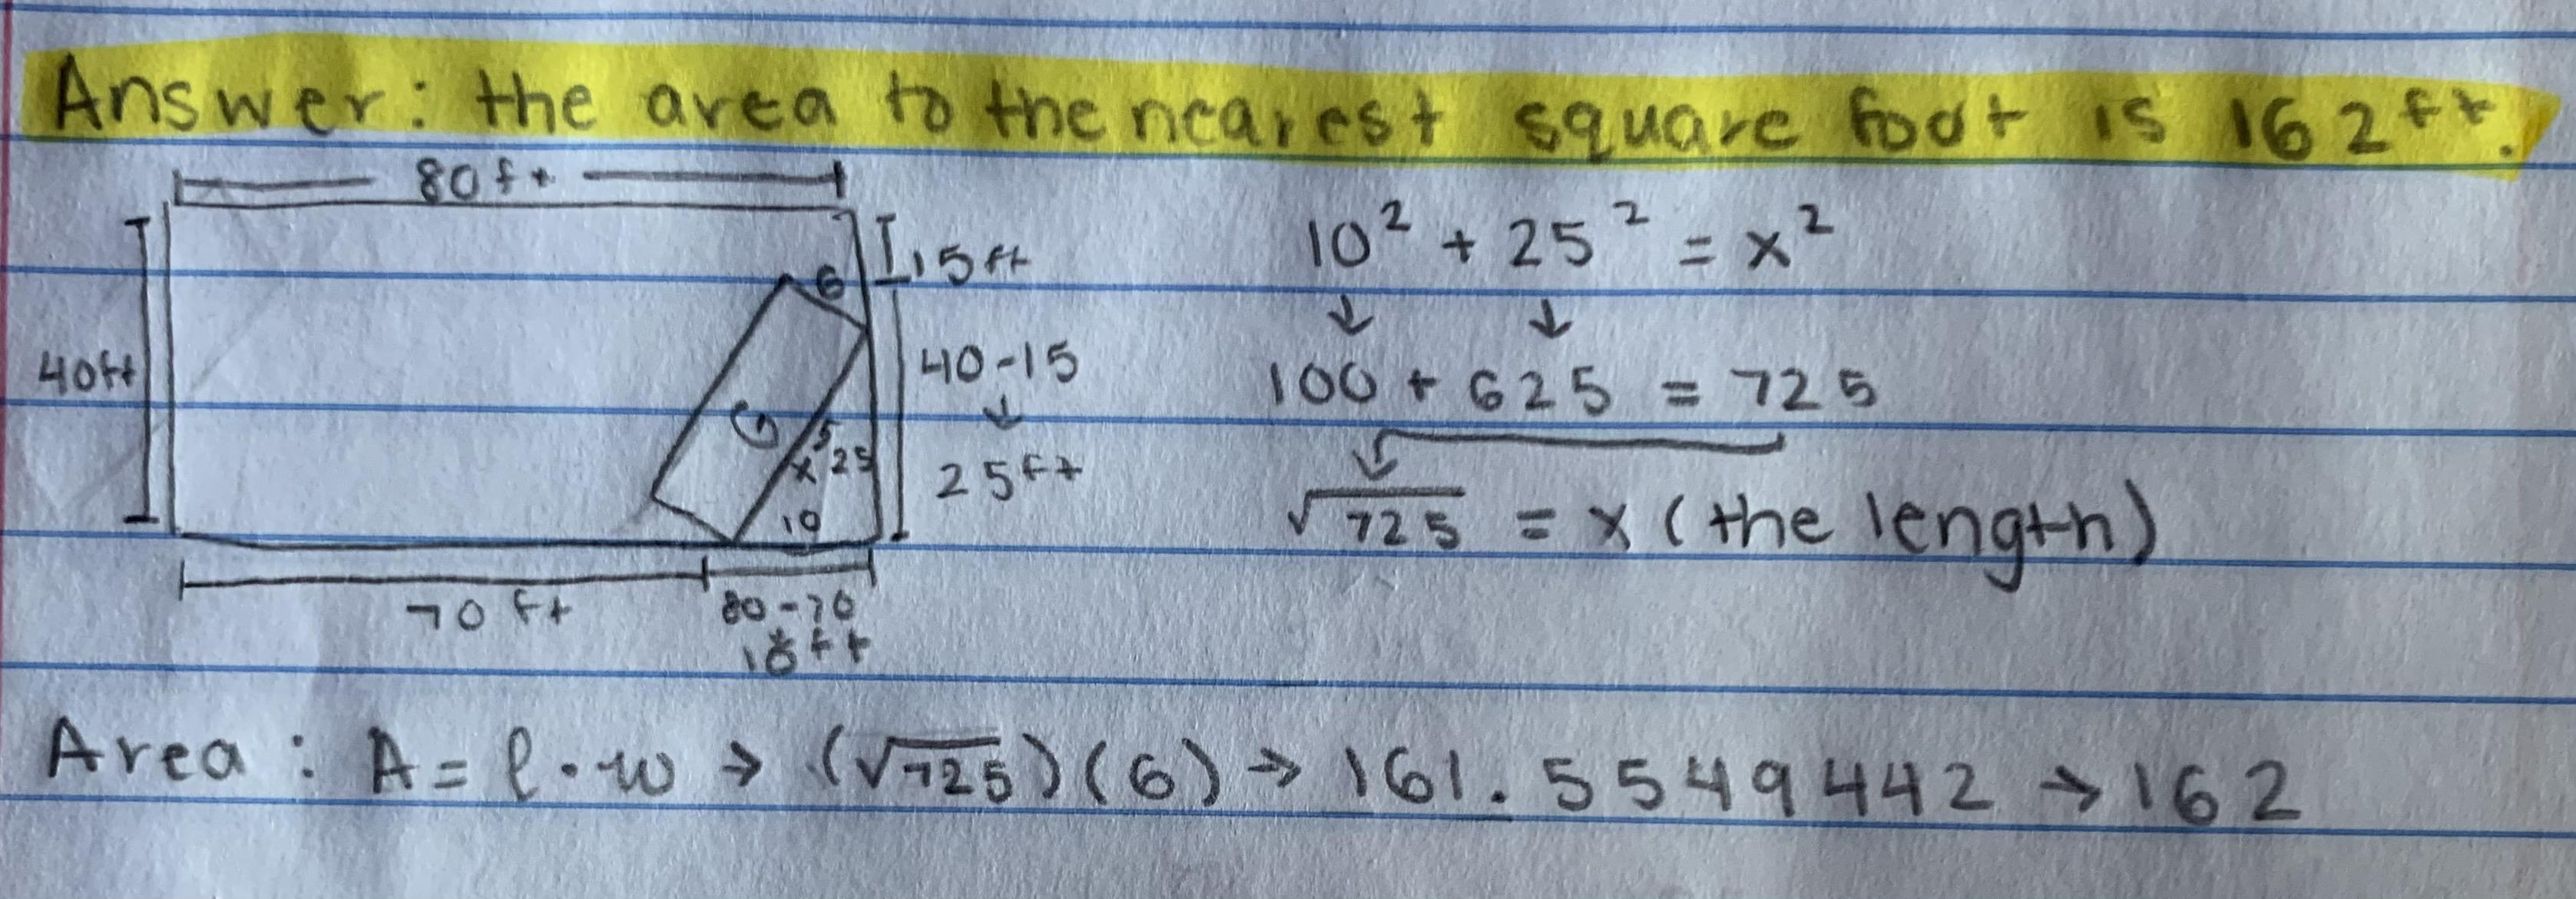 Answer: the area to the nearest square foot is 162 ft.
80 ft
15 ft
6
40ft
40-15
↓
25ft
G
x 25
10
70 ft
80-70
10ft
10² + 25² = x²
↓ ↓
100 + 625 = 725
√725 = x (the length)
Area: A = l · w → (√725)(6) → 161.5549442 → 162